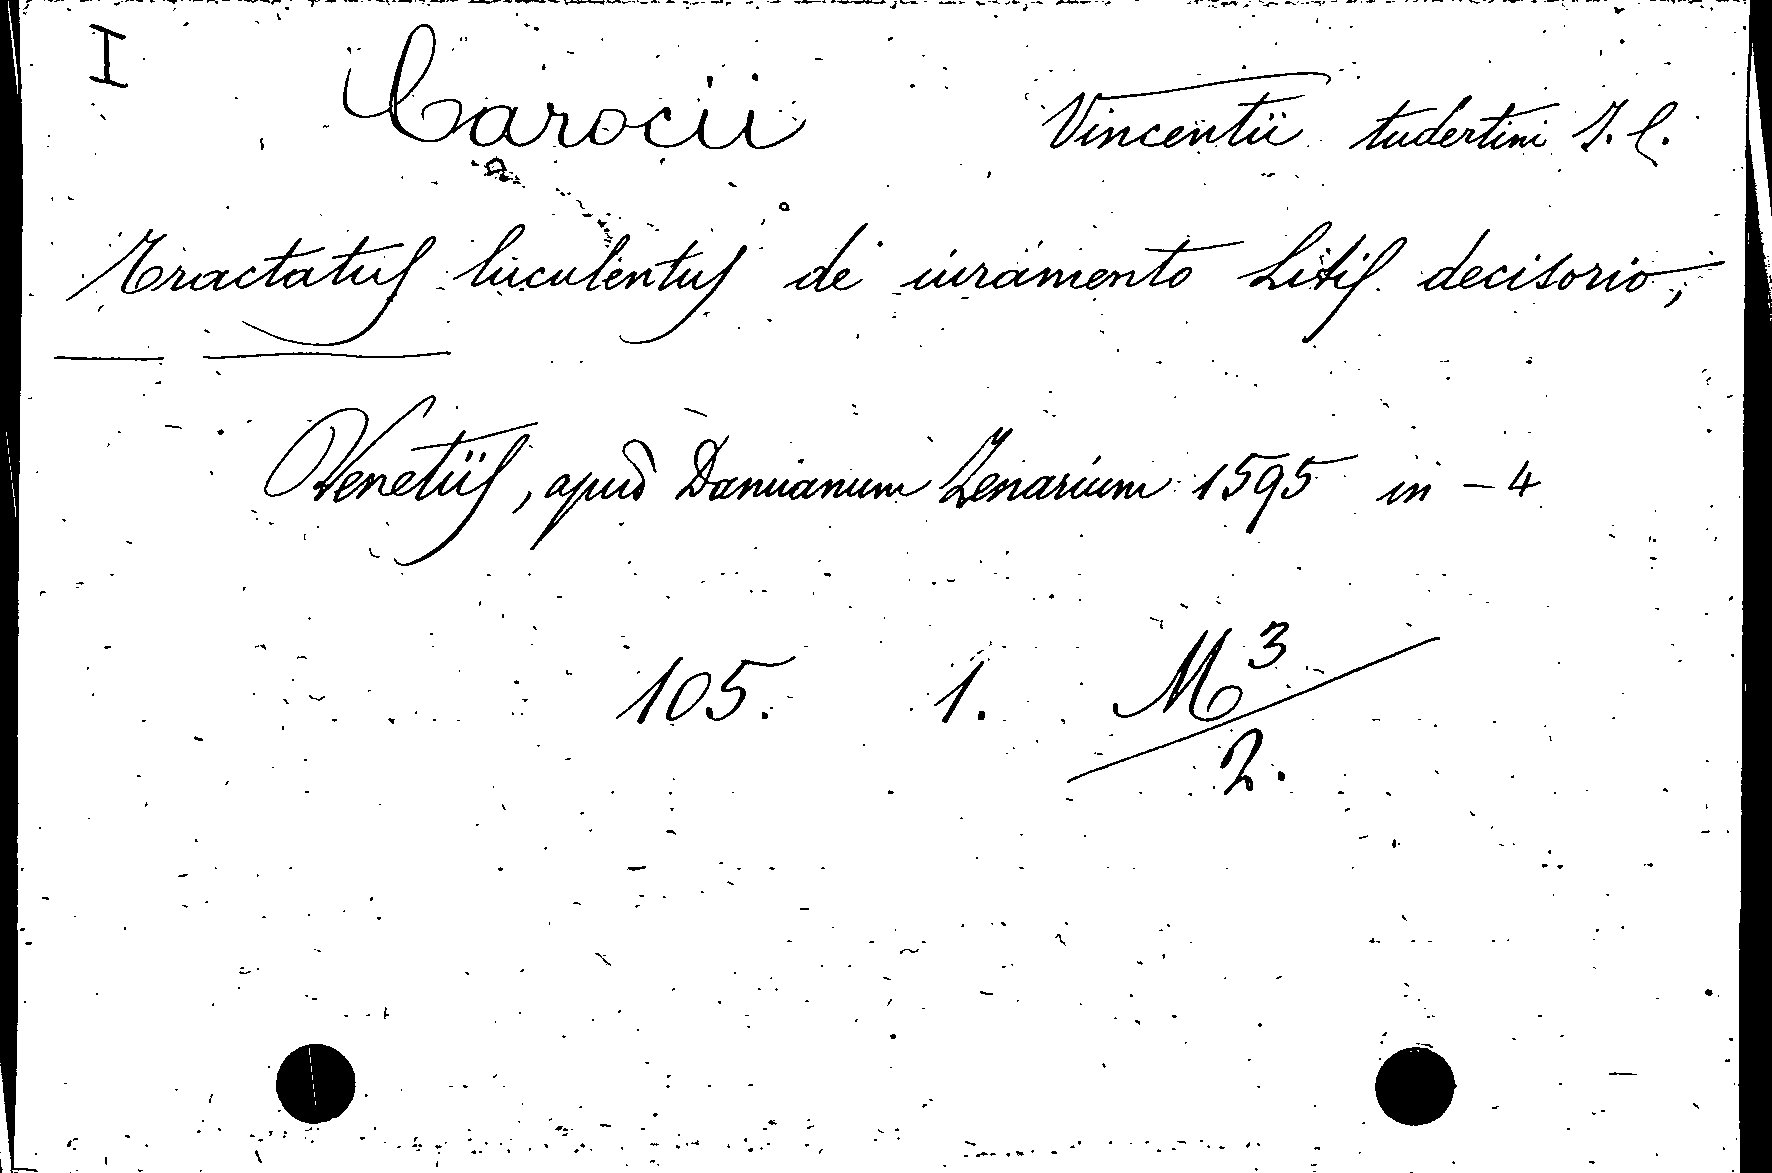 I Carocii Vincentii tudertini J. C.
Tractatus luculentus de iuramento Litis decisorio,
Venetiis, apud Damianum Zenarium 1595 in - 4
105. 1. M3
2.